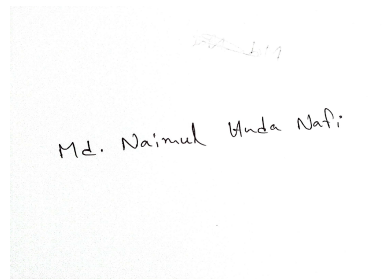 Md. Naimul Huda Nafi